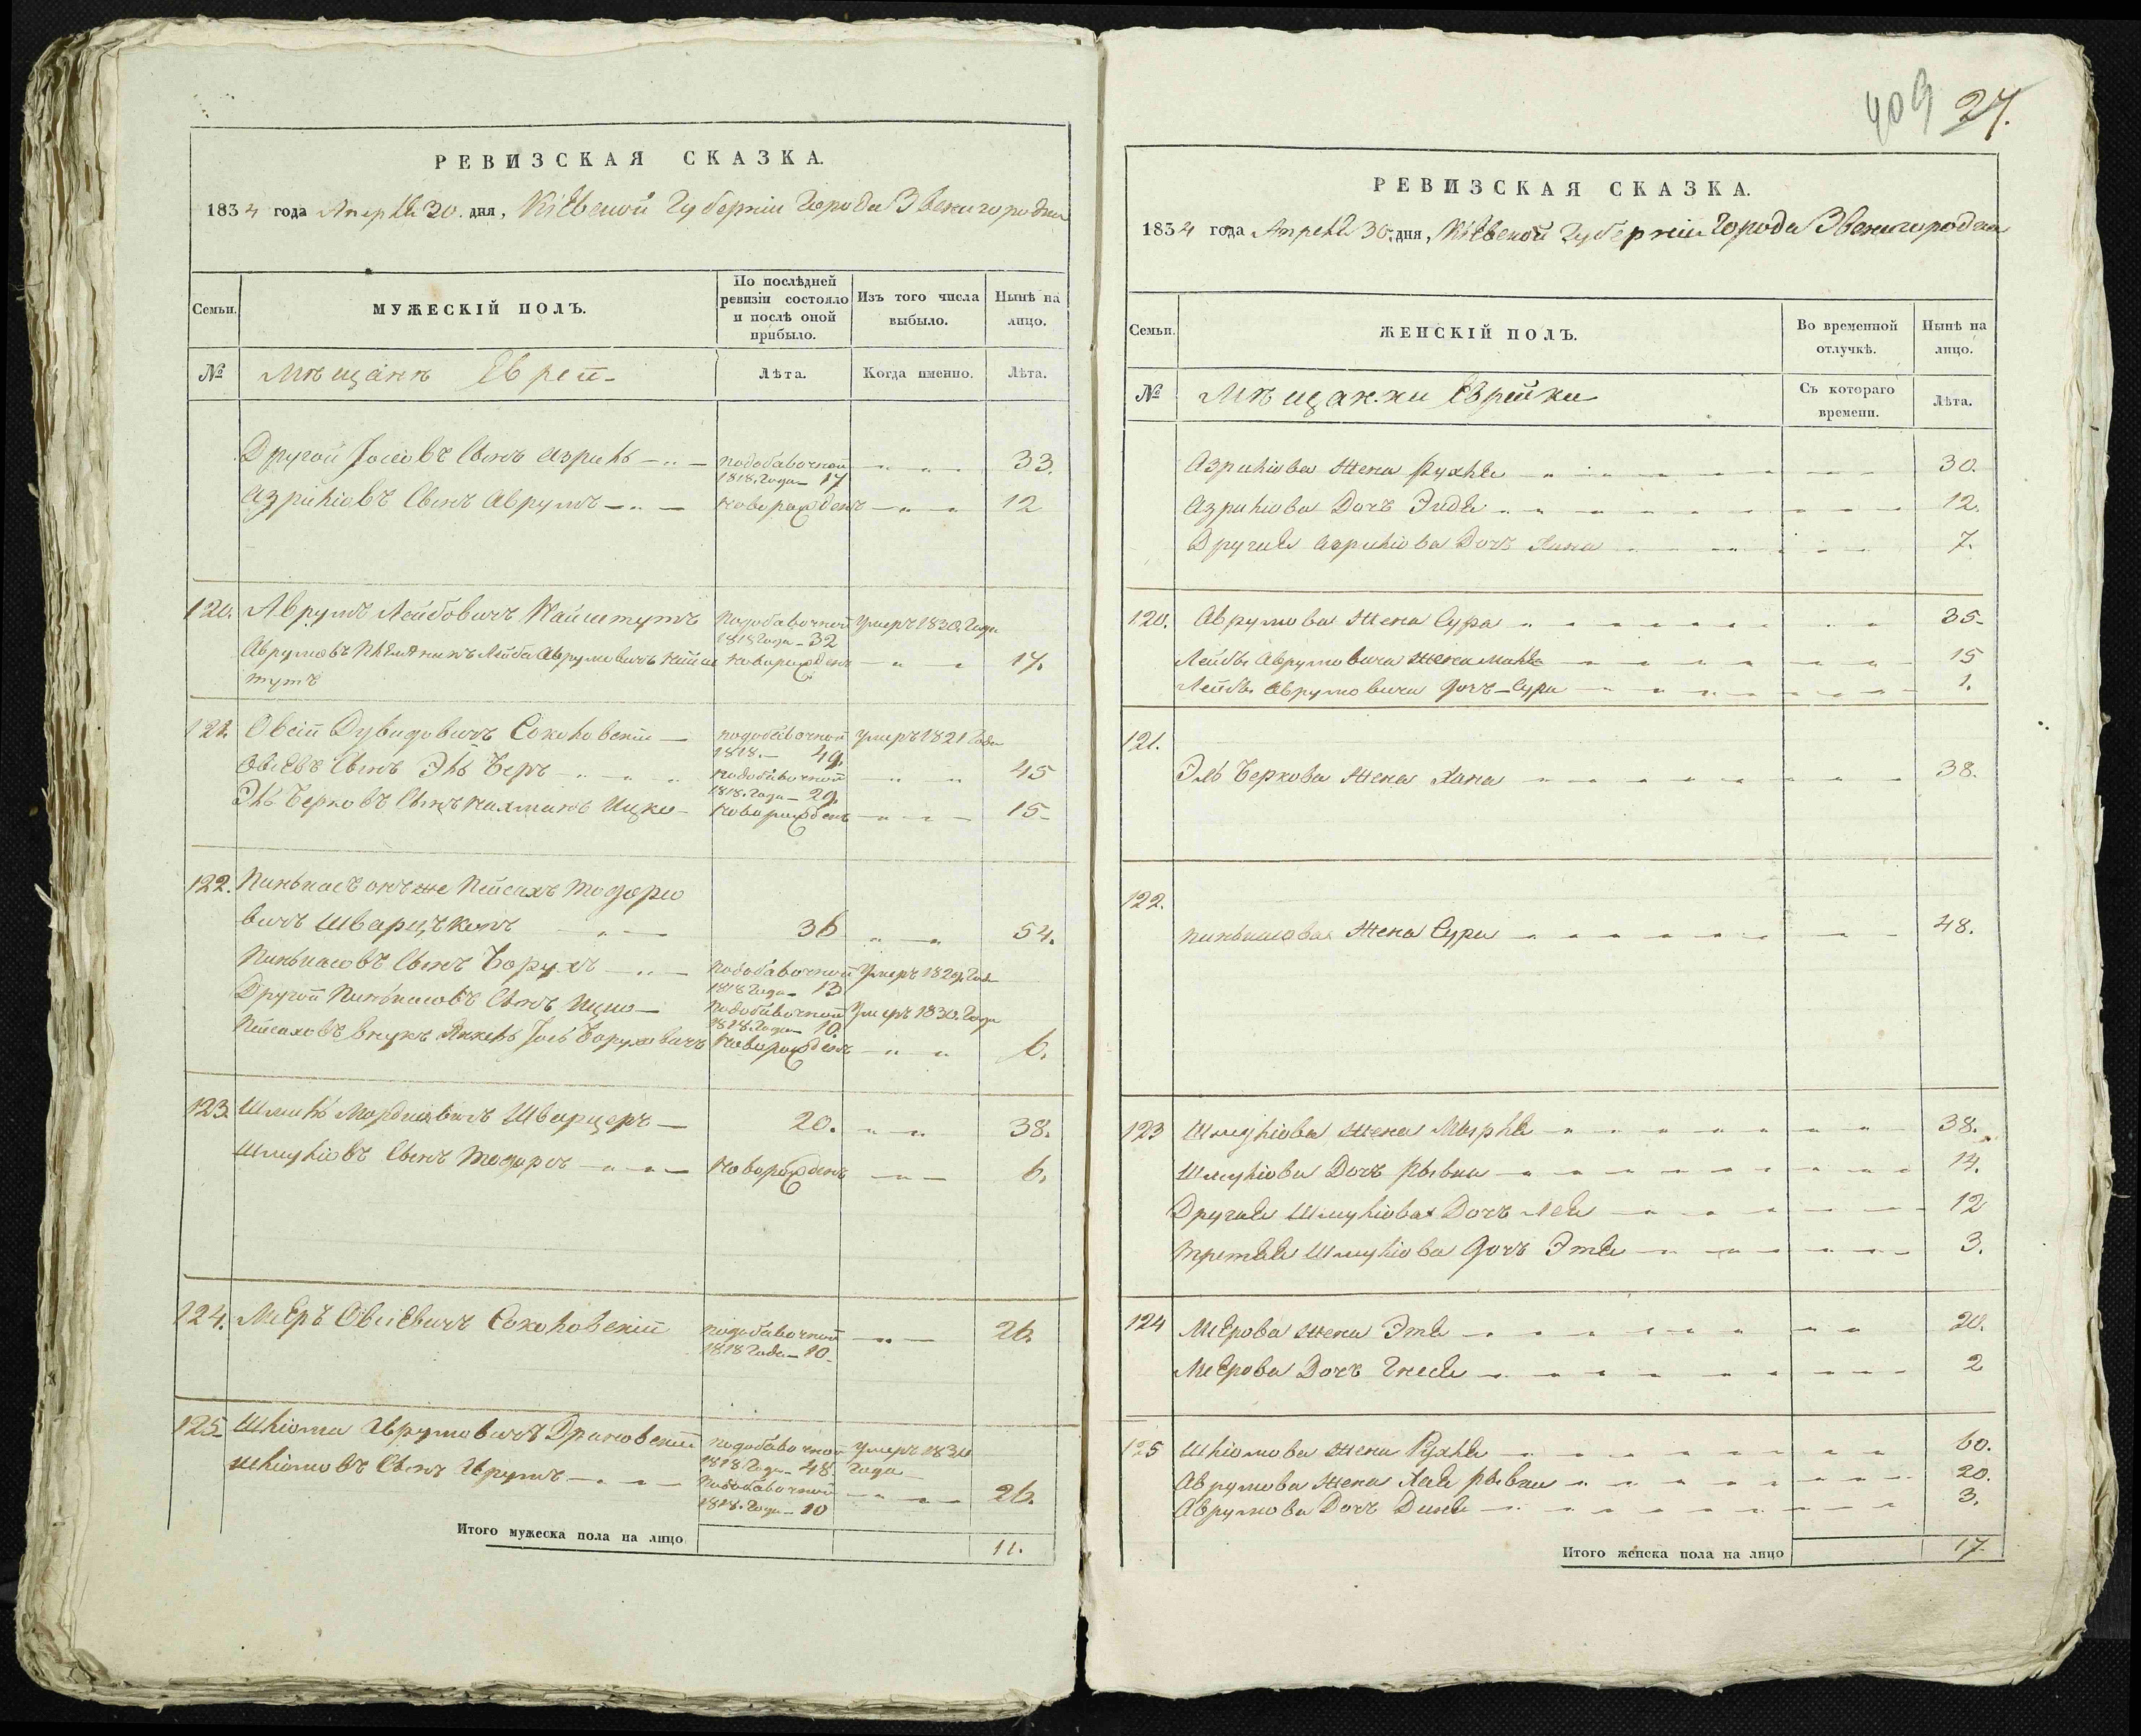 РЕВИЗСКАЯ СКАЗКА.
1834 года Апреля 30. дня, Кіевской Губерніи Города Звенигородки
Семьи.
МУЖЕСКІЙ ПОЛЪ.
По послѣдней ревизіи состояло и послѣ оной прибыло.
Изъ того числа выбыло.
Нынѣ на лицо.
№
Мѣщанѣ Евреи
Лѣта.
Когда именно.
Лѣта.
Другой Іосіовъ Сынъ Азриль подобавочной 1818. Года 17 33.
Азриліовъ Сынъ Аврумъ новорожденъ 12
120. Аврумъ Лейбовичъ Найштутъ подобавочной 1818 Года 32 Умеръ 1830. Года
Аврумовъ Племяникъ Лейба Аврумовичъ Найш новорожденъ 17.
тутъ
121. Овсій Дувидовичъ Соколовскій подобавочной 1818. 49. Умеръ 1821 Года
Овсіевъ Сынъ Эль Беръ подобавочной 1818. Года 29. 45
Эль Берковъ Сынъ Нахманъ Ицко новорожденъ 15
122. Пинькасъ онъ же Пейсахъ Тодоро
вичъ Шварцъконъ 36 54.
Пинькасовъ Сынъ Борухъ подобавочной 1818 Года 13 Умеръ 1829. Года
Другой Пинькасовъ Сынъ Ицко подобавочной 1818. Года 10. Умеръ 1830. Года
Пейсаховъ Внукъ Янкель Іось Боруховичъ новорожденъ 6.
123. Шмиль Мордковичъ Шварцеръ 20. 38.
Шмуліовъ Сынъ Тодоръ новорожденъ 6.
124. Меєръ Овсіевичъ Соколовскій подобавочной 1818 Года 10. 26.
125 Шліома Аврумовичъ Драновскій подобавочной 1818 Года 48. Умеръ 1830 Года
Шліомовъ Сынъ Аврумъ подобавочной 1818. Года 10 26.
Итого мужеска пола на лицо 11.
409 27.
РЕВИЗСКАЯ СКАЗКА.
1834 года Апреля 30. дня, Кіевской Губерніи Города Звенигородки
Семьи.
ЖЕНСКІЙ ПОЛЪ.
Во временной отлучкѣ.
Нынѣ на лицо.
№
Мѣщанки Еврейки
Съ котораго времени.
Лѣта.
Азриліова Жена Рухля 30.
Азриліова Дочъ Эидя 12.
Другая Азриліова Дочъ Хана 7.
120. Аврумова Жена Сура 35
Лейбы Аврумовича Жена Маля 15
Лейбы Аврумовича Дочъ Сура 1.
121.
Эль Беркова Жена Хана 38.
122.
Пинькасова Жена Сура 48.
123 Шмуліова Жена Мырля 38.
Шмуліова Дочъ Рывка 14.
Другая Шмуліова Дочъ Лея 12
Третая Шмуліова Дочъ Этя 3.
124 Меєрова Жена Этя 20.
Меєрова Дочъ Гнеся 2
125 Шліомова Жена Рухля 60.
Аврумова Жена Хая Рывка 20.
Аврумова Дочъ Диня 3.
Итого женска пола на лицо 17.